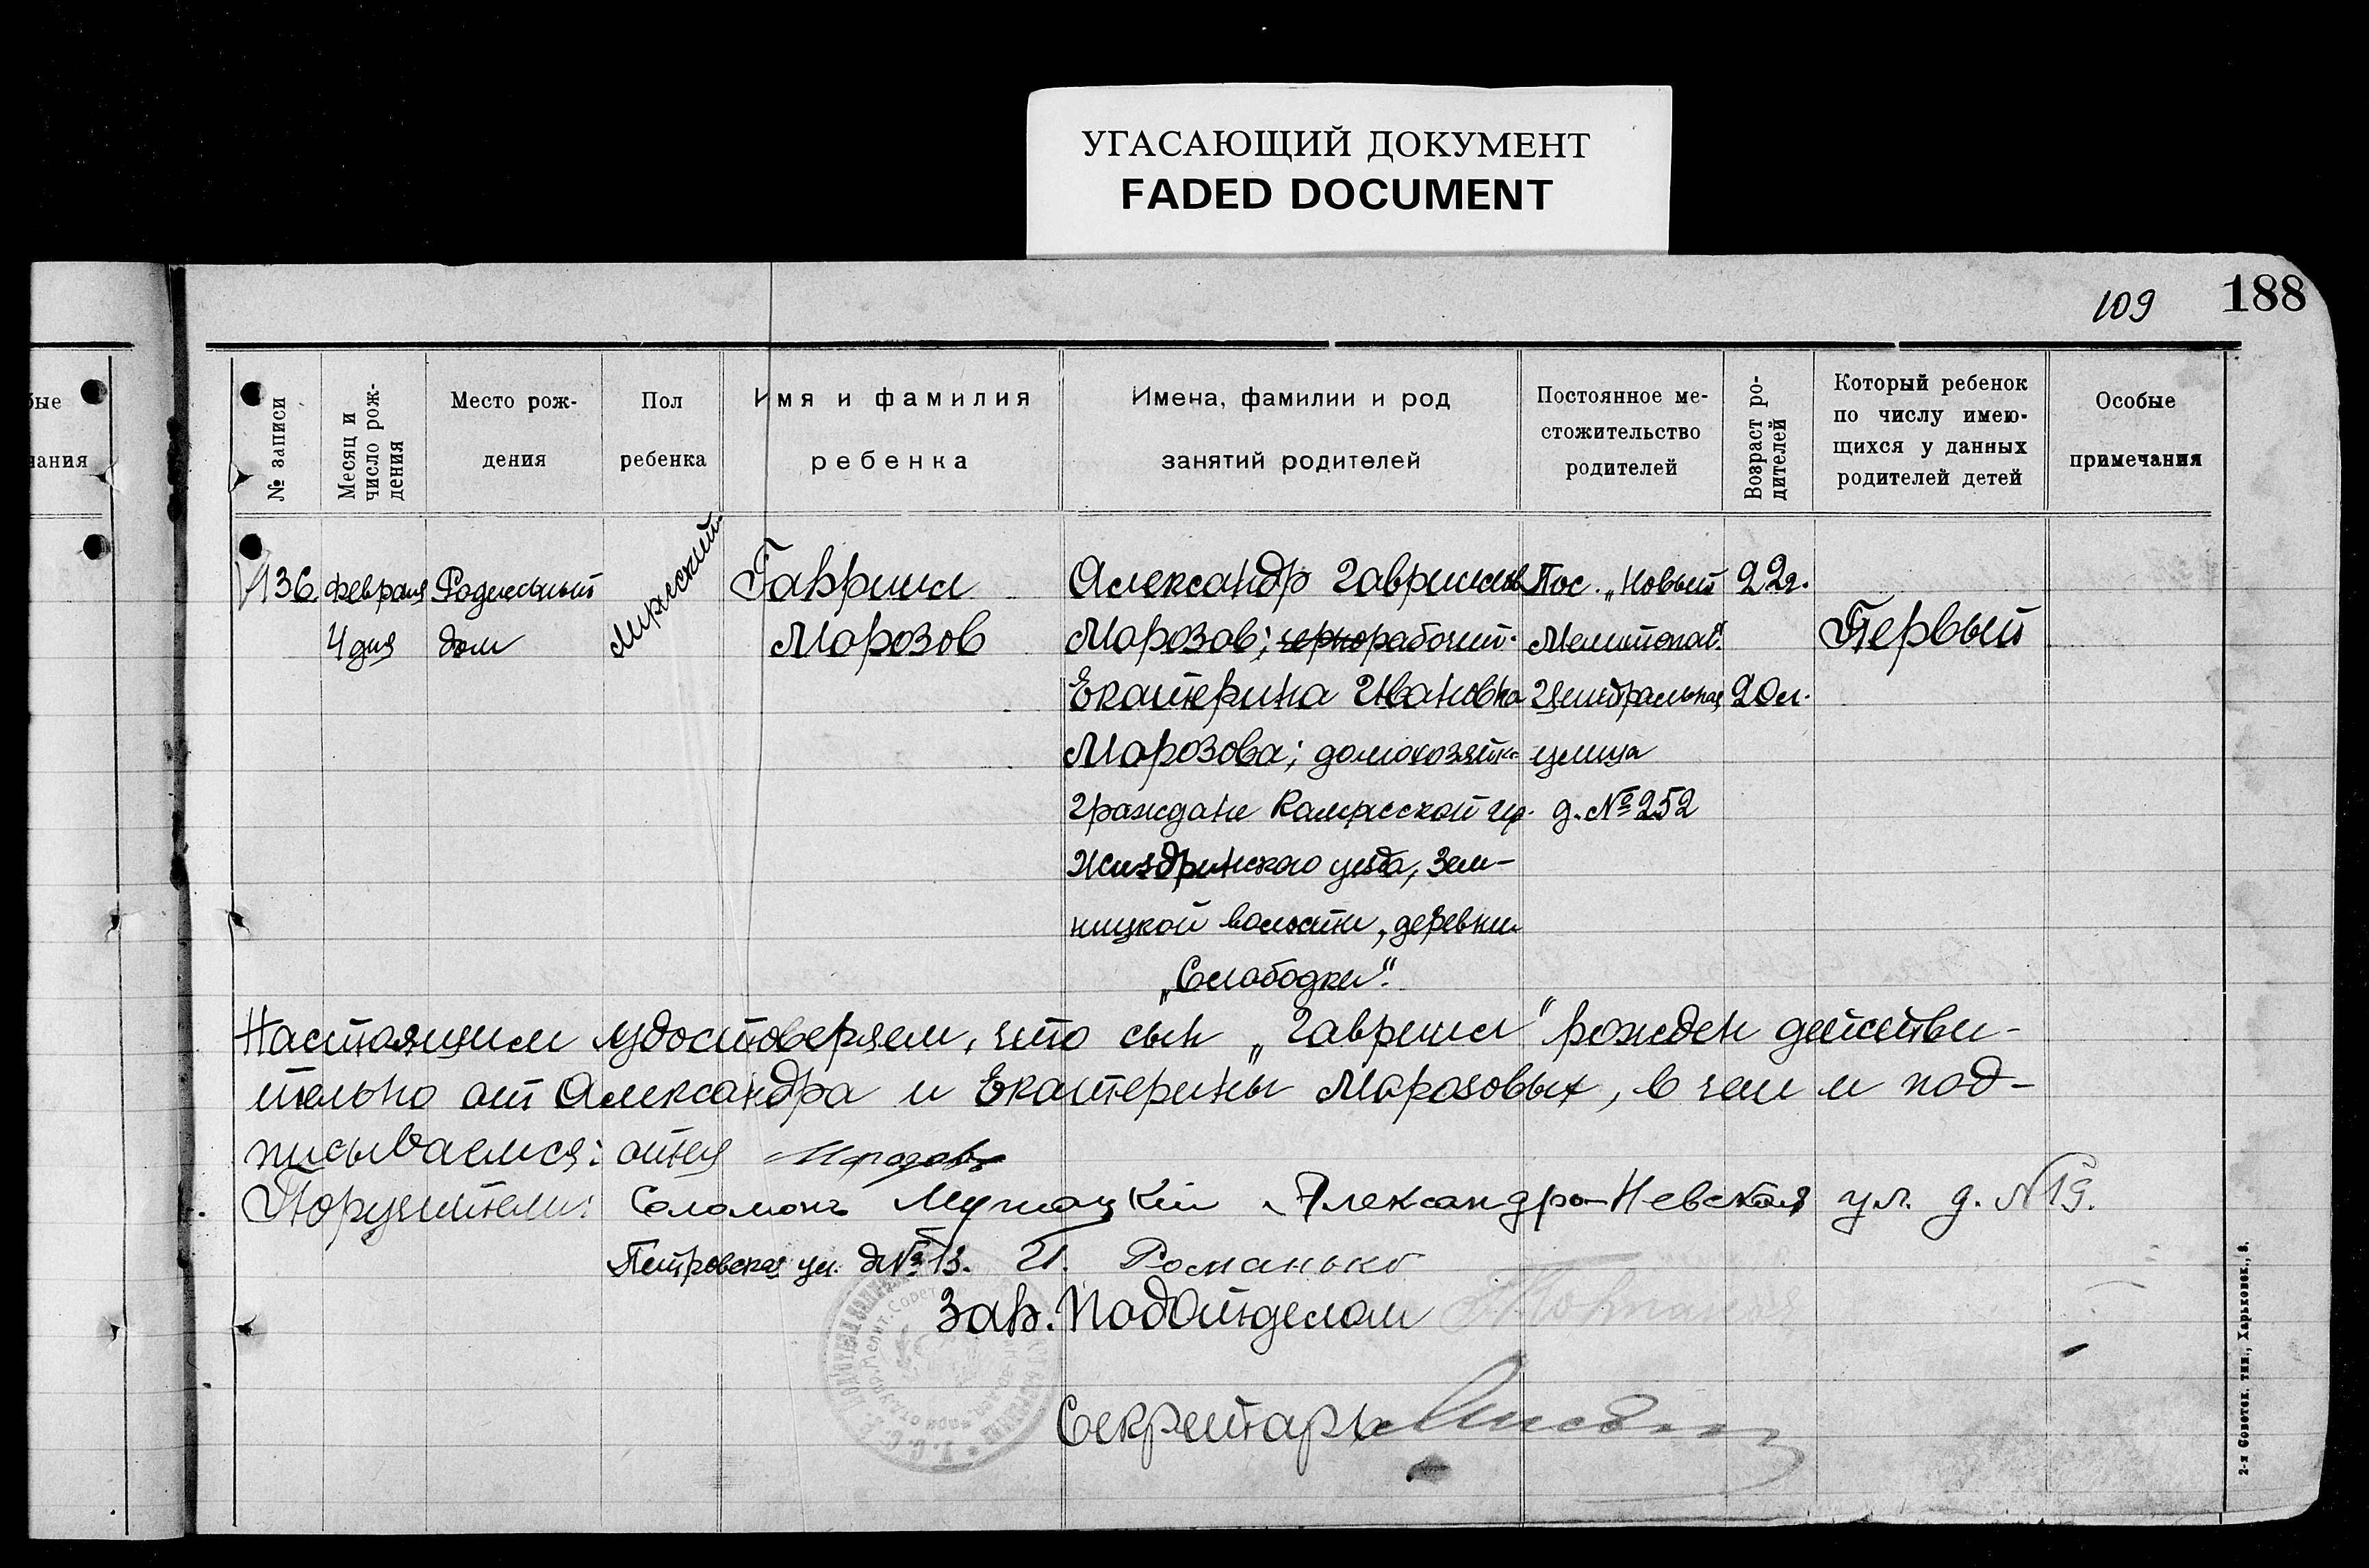 УГАСАЮЩИЙ ДОКУМЕНТ
FADED DOCUMENT
109 188
ые
ания
№ записи
Месяц и число рож-
дения
Место рож-
дения
Пол
ребенка
Имя и фамилия
ребенка
Имена, фамилии и род
занятий родителей
Постоянное ме-
стожительство
родителей
Возраст ро-
дителей
Который ребенок
по числу имею-
щихся у данных
родителей детей
Особые
примечания
136
февраля
4 дня
Родильный
дом
Мужеский
Гавриил
Морозов
Александр Гаврилов
Морозов; чернорабочий.
Екатерина Ивановна
Морозова; домохозяйк
Граждане Калужской гу.
Жиздринского уезда, Зем-
ницкой волости, деревни
„Слободки“.
Пос. „Новый
Мелитополь“.
Центральная
улица
д. №252
22г.
20л.
Первый
Настоящим удостоверяем, что сын „Гавриил“ рожден действи-
тельно от Александра и Екатерины Морозовых, в чем и под-
писываемся: отец Морозовъ
Поручители: Соломонъ Александро-Невская ул. д. №19.
Петровская ул. д №13. И. Романько
Зав. Подотделом
Секретарь
2-я Советск. тип., Харьковск., 8.